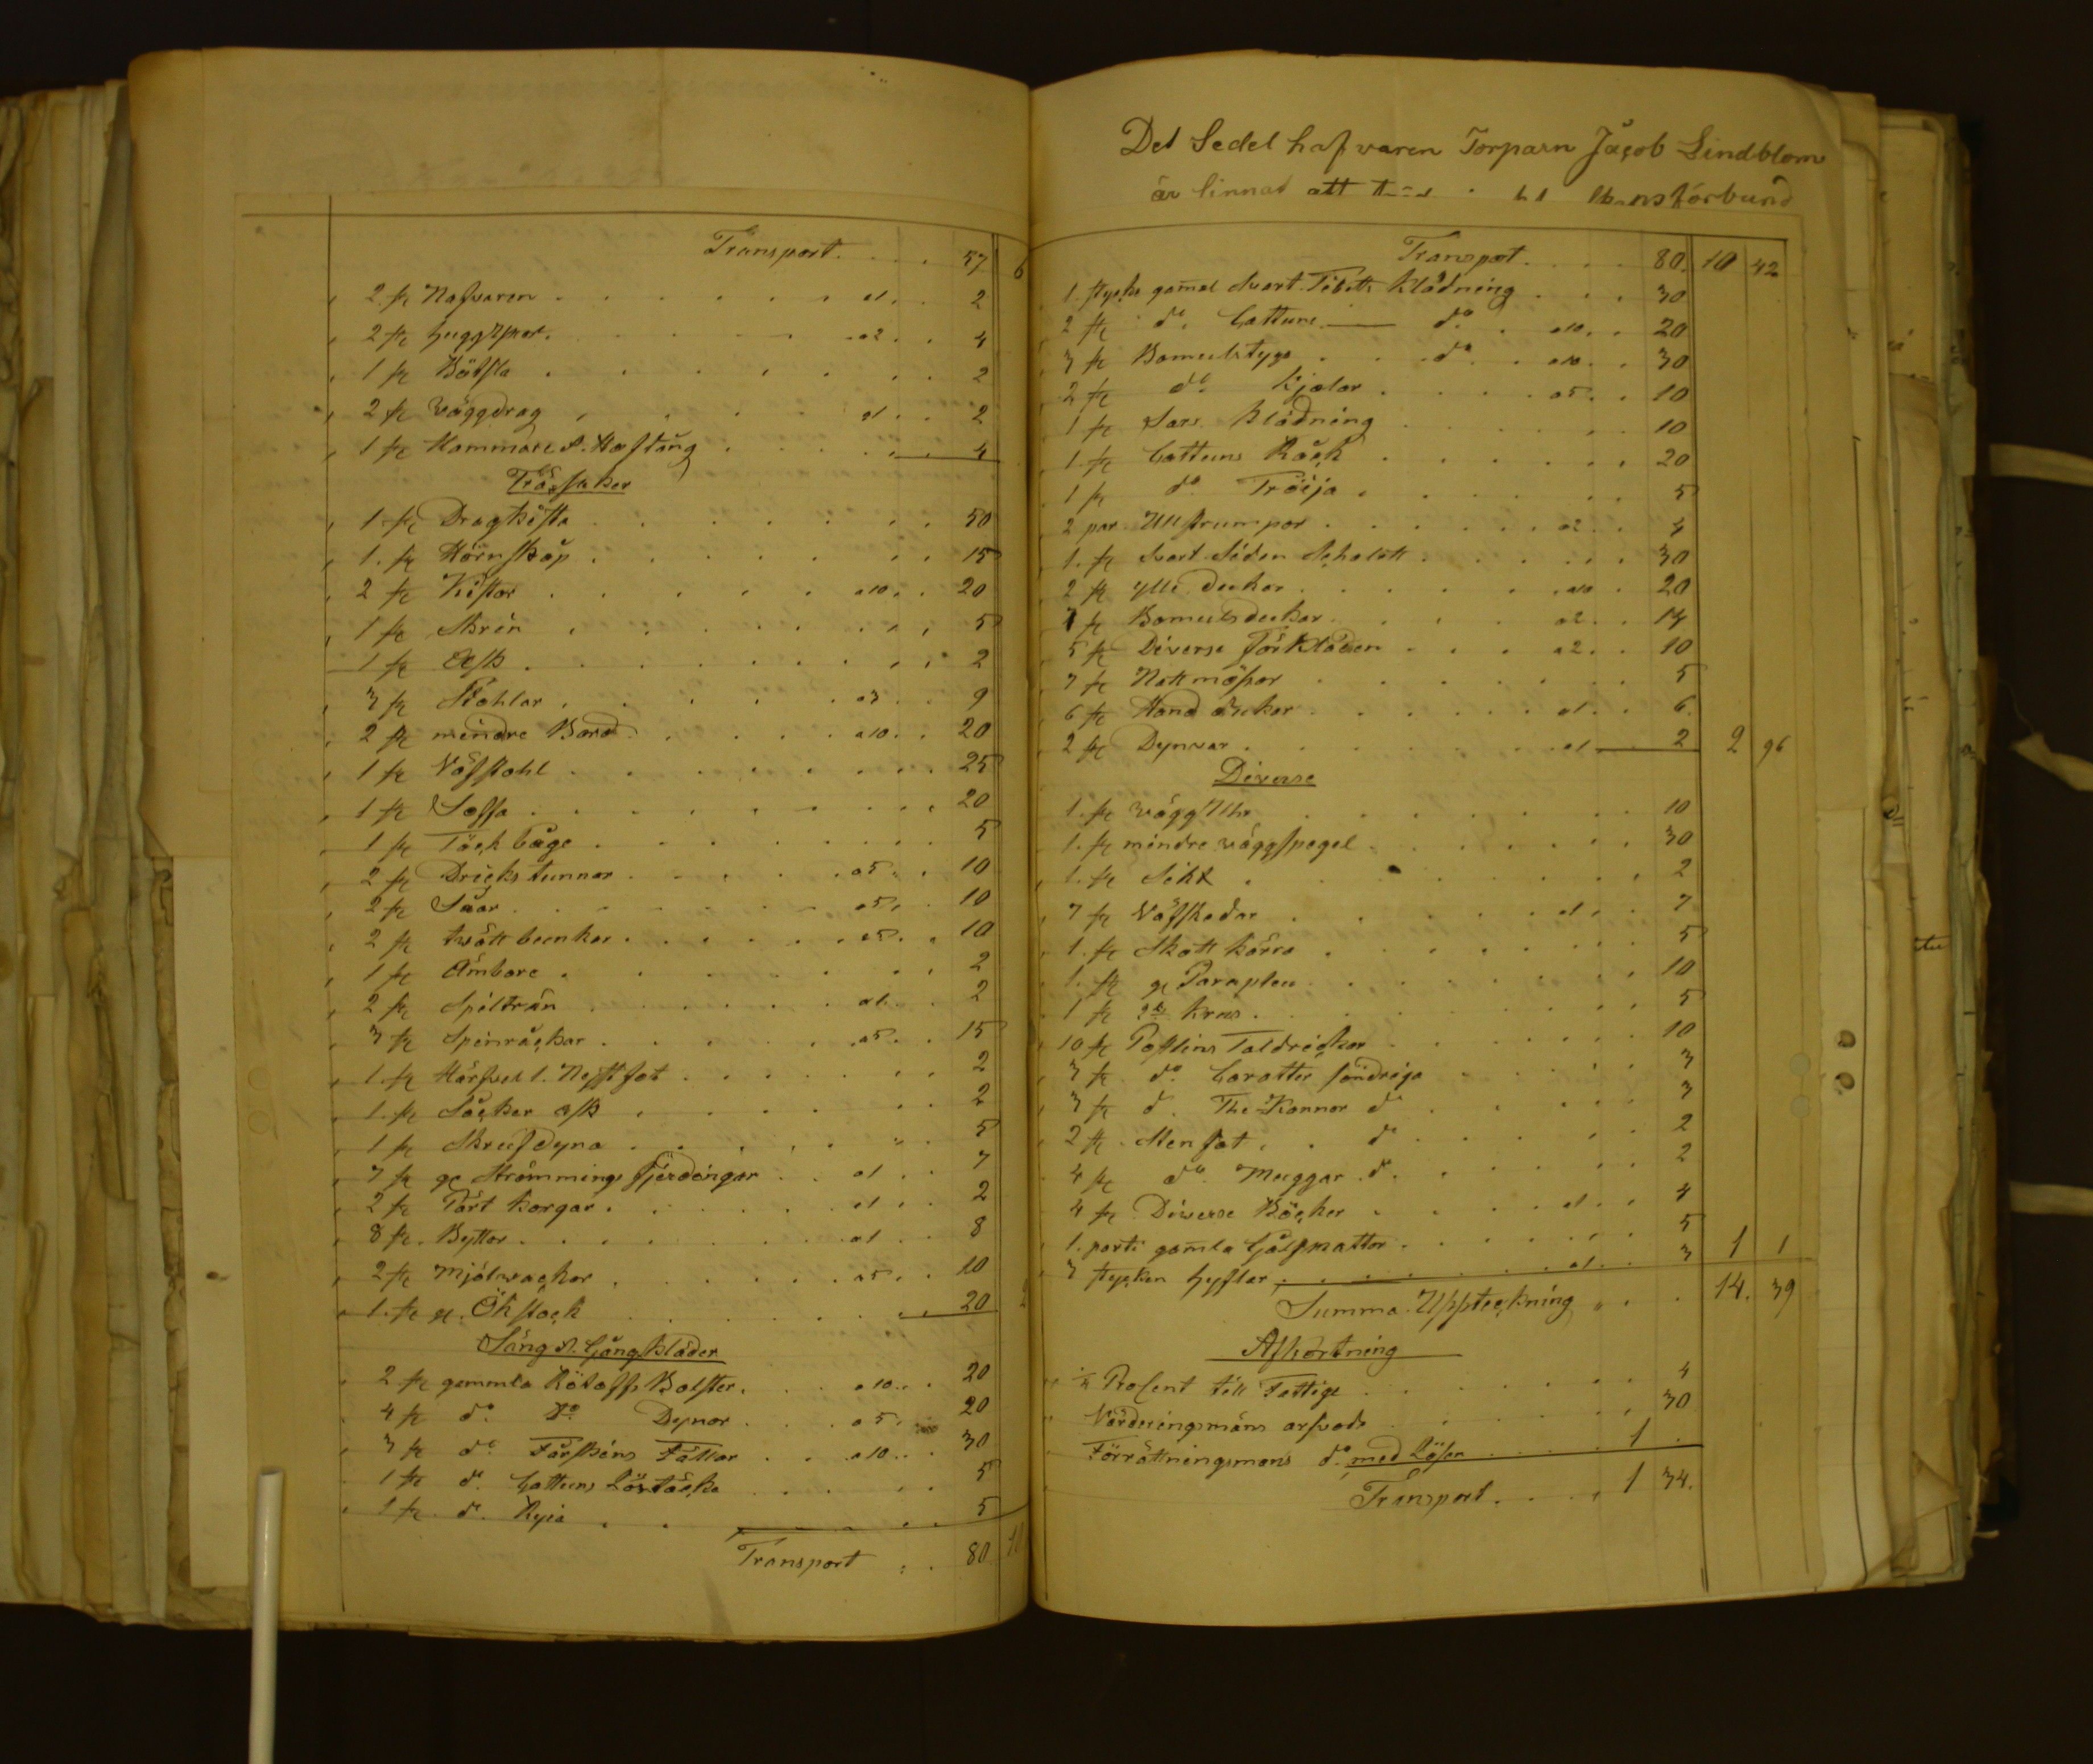 Transport. . . . . 57 6
2 st Nafvaren . . . . . . . a1. . 2
2 st huggspar. . . . . . a2 . . 4
1 st Båtsla . . . . . . . . 2
2 st väggdrag . . . . a1 . . 2
1 st Hammare & Hoftång . . . . . . 4
Träsaker
1 st Dragkista . . . . . . . . 50
1. st Hörnskåp . . . . . . . . 15
2 st Kistor . . . . . a10. . 20
1 st Skrin . . . . . . . . . 5
1 st Ask . . . . . . . . . 2
3 st Stohlar . . . . . a3 . . 9
2 st mindre Bord . . . . . a10. . 20
1 stVäfstohl . . . . . . . . . 25
1 st Soffa . . . . . . . . . . 20
1 st Täck båge . . . . . . . . 5
2 st Dricks tunnor . . . . . a5 . . 10
2 st Såar . . . . . . . a5. . 10
2 st tvätt bunkar . . . . . . a5. . 10
1 st Ämbare . . . . . . . . 2
2 st Spiltrån . . . . . . a1. . 2
3 st Spinråckar . . . . . . a5. . 15
1. st Härfvel 1. Nyst fot . . . . . . . 2
1. st Såcker ask . . . . . . . 2
1 st Skrufdyna . . . . . . . 5
7 st ge Strömmings fjerdingar . . a1 . . 7
2 st Pärt korgar . . . . . . a1 . . 2
8 st. Byttor . . . . . . . . a1 . . 8
2 st Mjölsäckar . . . . . . a5 . . 10
1. st g. Ökstock . . . . . . . . 20
Säng & Gångkläder
2 st gammla Bolster . . . a10. . 20
4 st do do Dynor . . . a5. . 20
3 st do Fårskins Fällar . . . a10. . 30
1 st do Cattuns Löstäcke . . . . . . 5
1 st do Ryia . . . . . . 5
Transport . . 80 10
Det Sedel hafvaren Torparn Jacob Lindblom
är linnat att
Transport . . . . 80. 10 42
1. stycke gamel Svart Tibets Klädning . . . 30
2 st do Cattuns do . a10. . 20
3 st Bomulstygs . . do . a10. . 30
2 st do Kjolar . . . . a5. . 10
1 st Sars Klädning . . . . . . 10
1. st Cattuns Råck . . . . . . 20
1 st do Tröija . . . . . . . 5
2 par Ullstrumpor . . . . . . a2 . . 4
1. st Svart Siden Schalett . . . . . . 30
2 st ylle dukar . . . . . . . a10 . 20
7 st Bomuls dukar . . . . . a2. . 14
5 st Diverse Förkläden . . . . a2. . 10
7 st Nattmössor . . . . . . . 5
6 st Hand dukar . . . . . . a1. . 6
2 st Dynvar . . . . . . a1 2 2 96
Diverse
1. st vägg Uhr . . . . . . . 10
1. st mindre väggspegel . . . . . . . 30
1. st Sikt . . . . . . . . 2
7 st Väfskedar . . . . . a1 . . 7
1. st Skottkärra . . . . . . . 5
1. st g Paraplen . . . . . . . 10
1 st krus . . . . . . . . 5
10 st Posslins Taldrickar . . . . . . 10
3 st do Caratter söndriga . . . . . 3
3 st do The Kannor do . . . . . 3
2 st Stenfat . . do . . . . . 2
4 st do Muggar do . . . . . . 2
4 st Diverse Böcker . . . . a1 . . 4
1. parti gamla Gålfmattor . . . . . . . 5
3 stycken hyflar . . . . . . . a1. . 3 1 1
Summa Uppteckning . . . 14. 39
Afkortning
Prosent till Fattige . . . . . . . 4
Värderingsmäns arfvode . . . . . . 30
Förrättningsmans do med Lösen . . . . 1 .
Transport . . . . . 1 34.